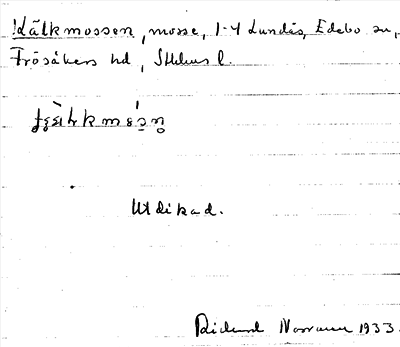 Kälkmossen, mosse, 1-4 Lundås, Edebo sn,
Frösåkers hd, Sthlms l.
Utdikad.
Rickard Norman 1933.